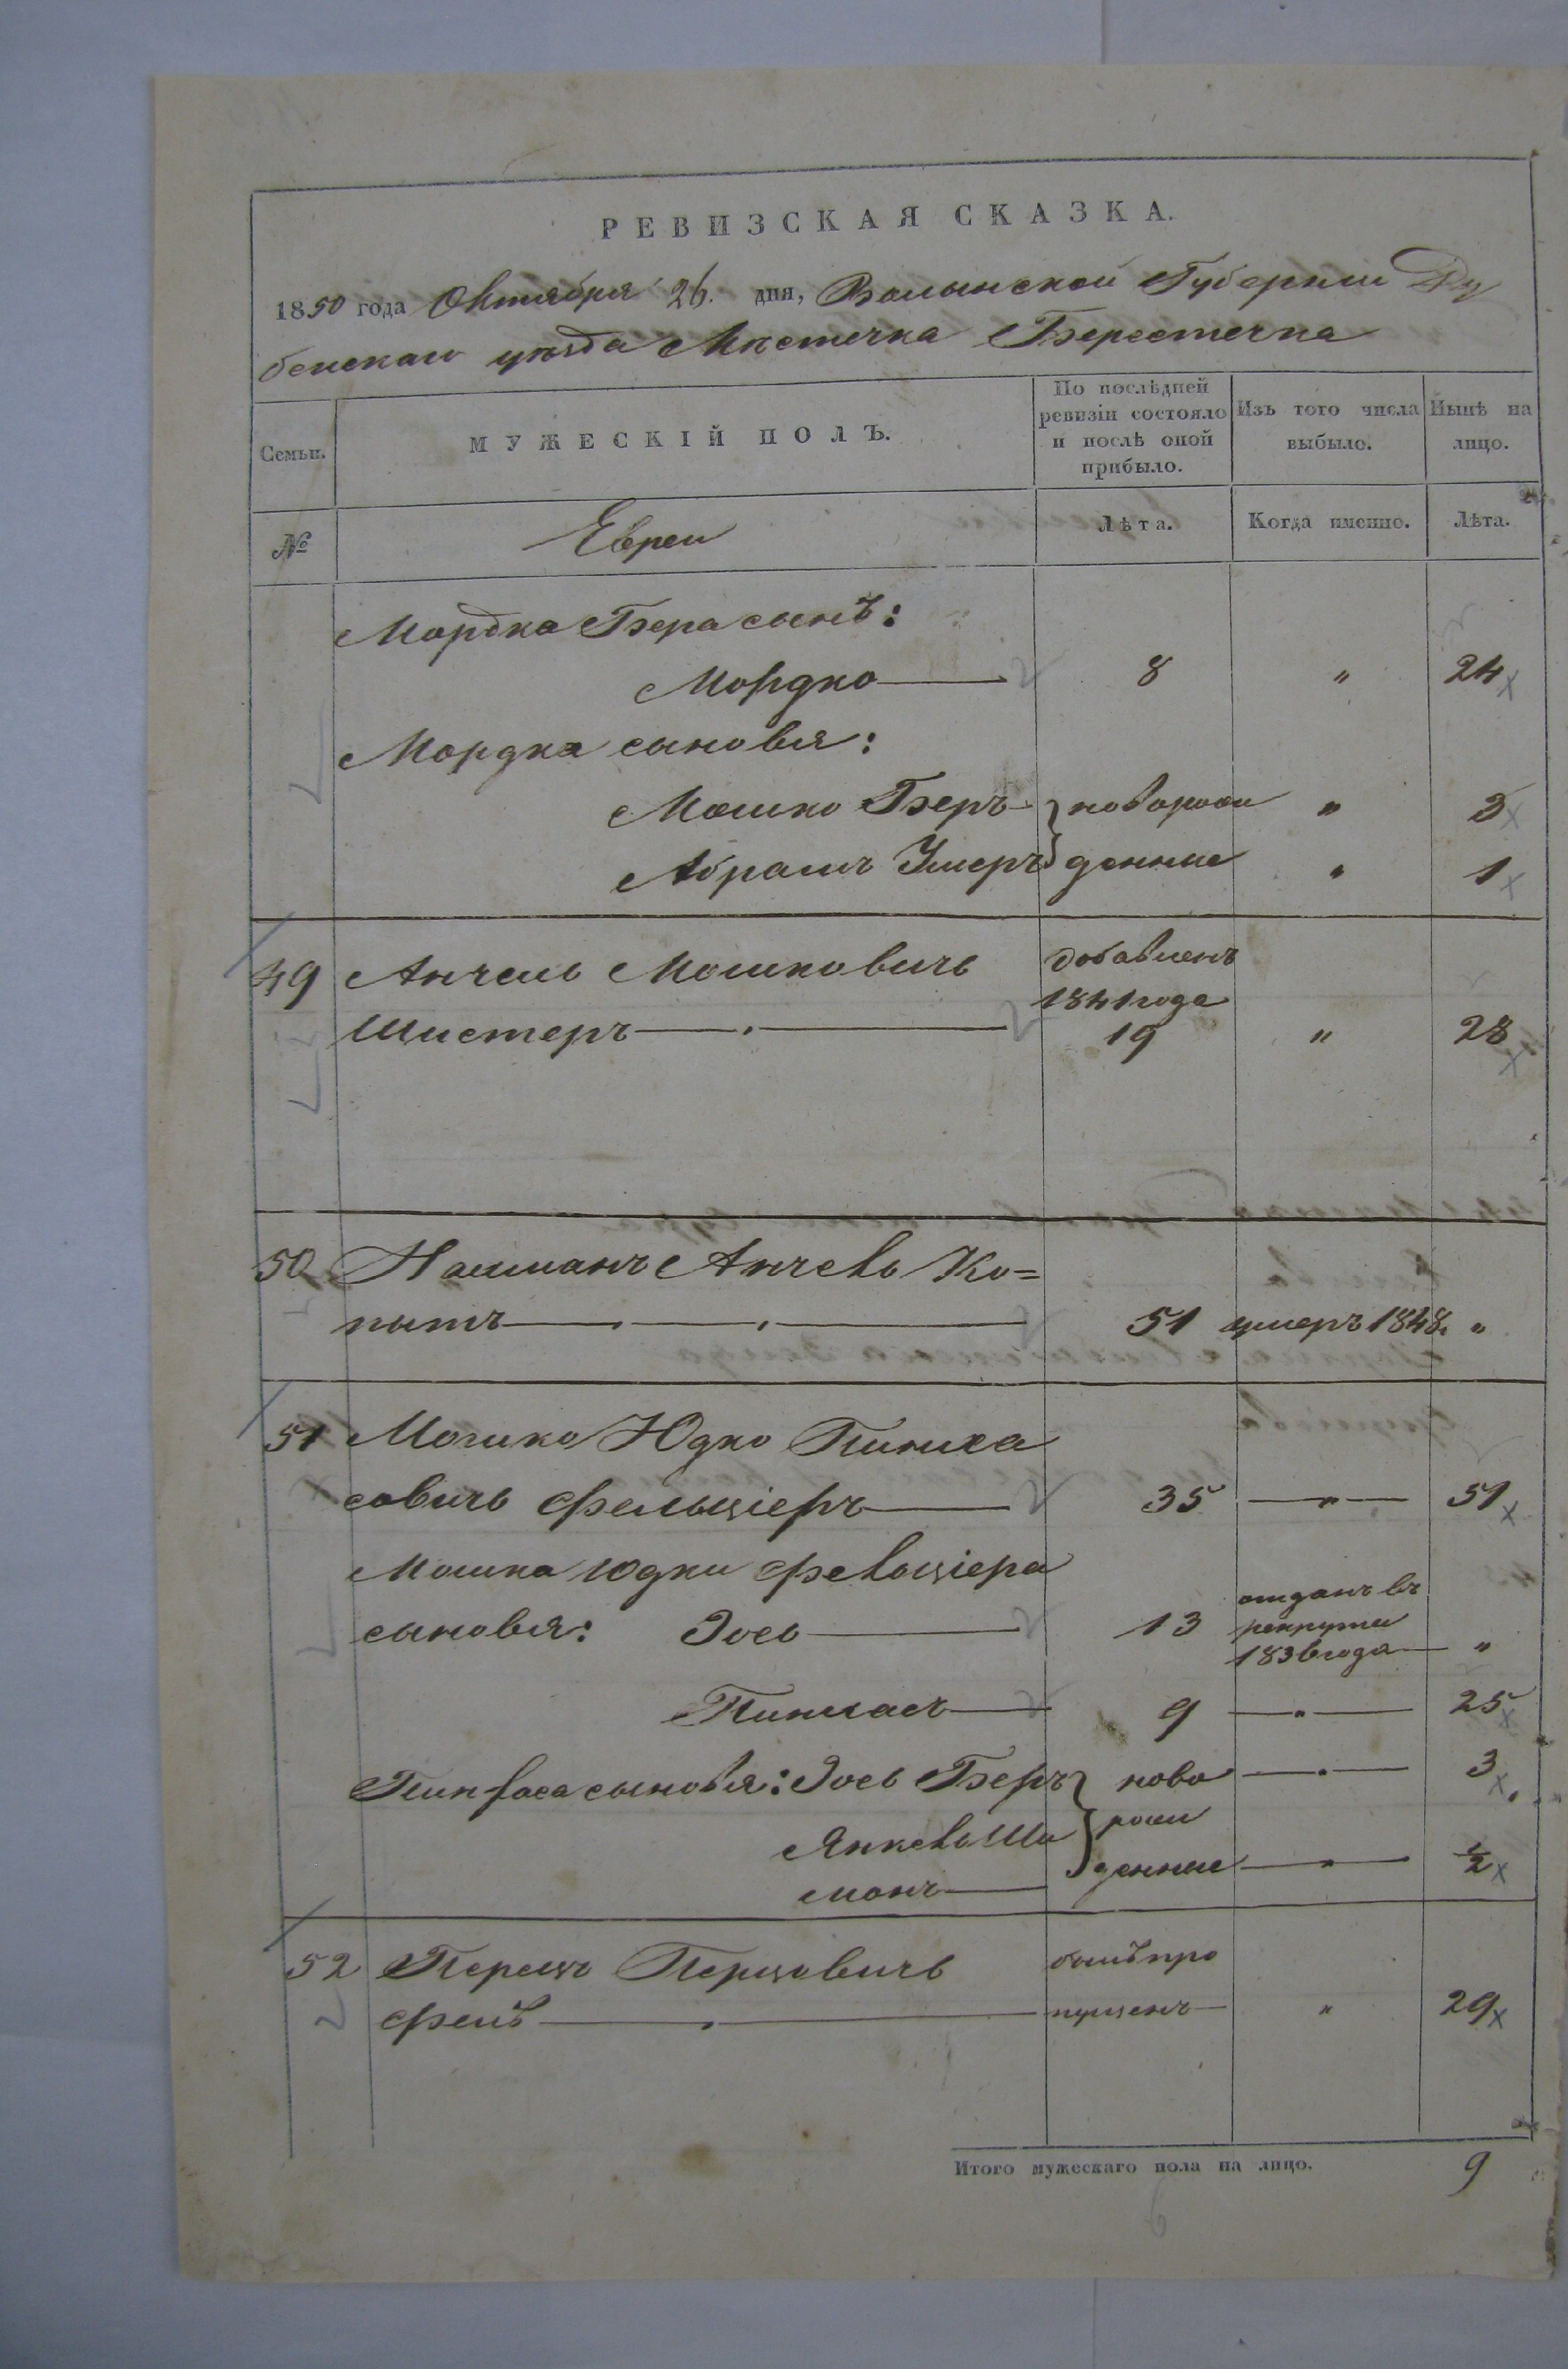 РЕВИЗСКАЯ СКАЗКА.
1850 года Октября 26. дня, Волынской Губернии Ду
бенскаго уѣзда Мѣстечка Берестечка
Семьи. МУЖЕСКІЙ ПОЛЪ. По послѣдней ревизіи состояло и послѣ оной прибыло. Изъ того числа выбыло. Нынѣ на лицо.
№ Евреи Лѣта. Когда именно. Лѣта.
Мордка Бера сынъ:
Мордко 8 " 24
Мордка сыновья:
Мошко Беръ } новорож " 3
Абрамъ Умеръ } денные " 1
49 Анчель Мошковичь добавленъ
1841 года
Шистеръ 19 " 28
50 Нахманъ Анчель Ко=
пытъ 51 умеръ 1848. "
51 Мошко Юдко Пинха
совичь Фельціеръ 35 " 51
Мошка Юдки Фельціера
сыновья: Іось 13 отданъ въ
рекруты
1836 года "
Пинхасъ 9 " 25
Пинхаса сыновья: Іось Беръ } ново " 3
Янкель Ши } рож
монъ денные " ½
52 Перецъ Перцовичь былъ про
Фейъ пущенъ " 29
Итого мужескаго пола на лицо. 9